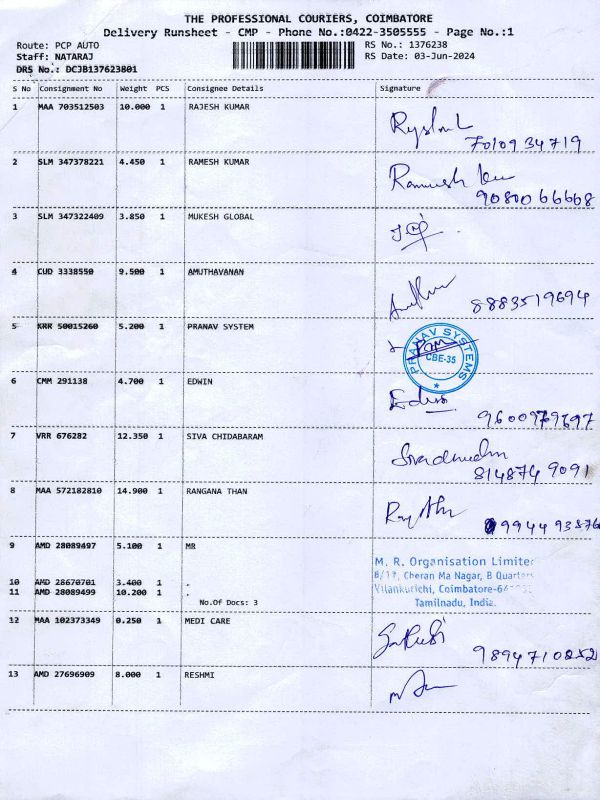 THE PROFESSIONAL COURIERS, COIMBATORE
Delivery Runsheet - CMP - Phone No.:0422-3505555 - Page No.:1
Route: PCP AUTO RS No.: 1376238
Staff: NATARAJ RS Date: 03-Jun-2024
DRS No.: DCJB137623801
S No Consignment No Weight PCS Consignee Details Signature
1 MAA 703512503 10.000 1 RAJESH KUMAR
7010934719
2 SLM 347378221 4.450 1 RAMESH KUMAR Ramesh
9080066668
3 SLM 347322409 3.850 1 MUKESH GLOBAL
4 CUD 3338550 9.500 1 AMUTHAVANAN
8883519694
5 KRR 50015260 5.200 1 PRANAV SYSTEM PRANAV SYSTEMS
CBE-35
6 CMM 291138 4.700 1 EDWIN Edwin
7 VRR 676282 12.350 1 SIVA CHIDABARAM
814874 9091
8 MAA 572182810 14.900 1 RANGANA THAN
9944493876
9 AMD 28089497 5.100 1 MR
M. R. Organisation Limite
8/17, Cheran Ma Nagar, B Quarters
10 AMD 28670701 3.400 1 .
11 AMD 28089499 10.200 1 . Vilankurichi, Coimbatore-
No.Of Docs: 3 Tamilnadu, India.
12 MAA 102373349 0.250 1 MEDI CARE
9894710252
13 AMD 27696909 8.000 1 RESHMI